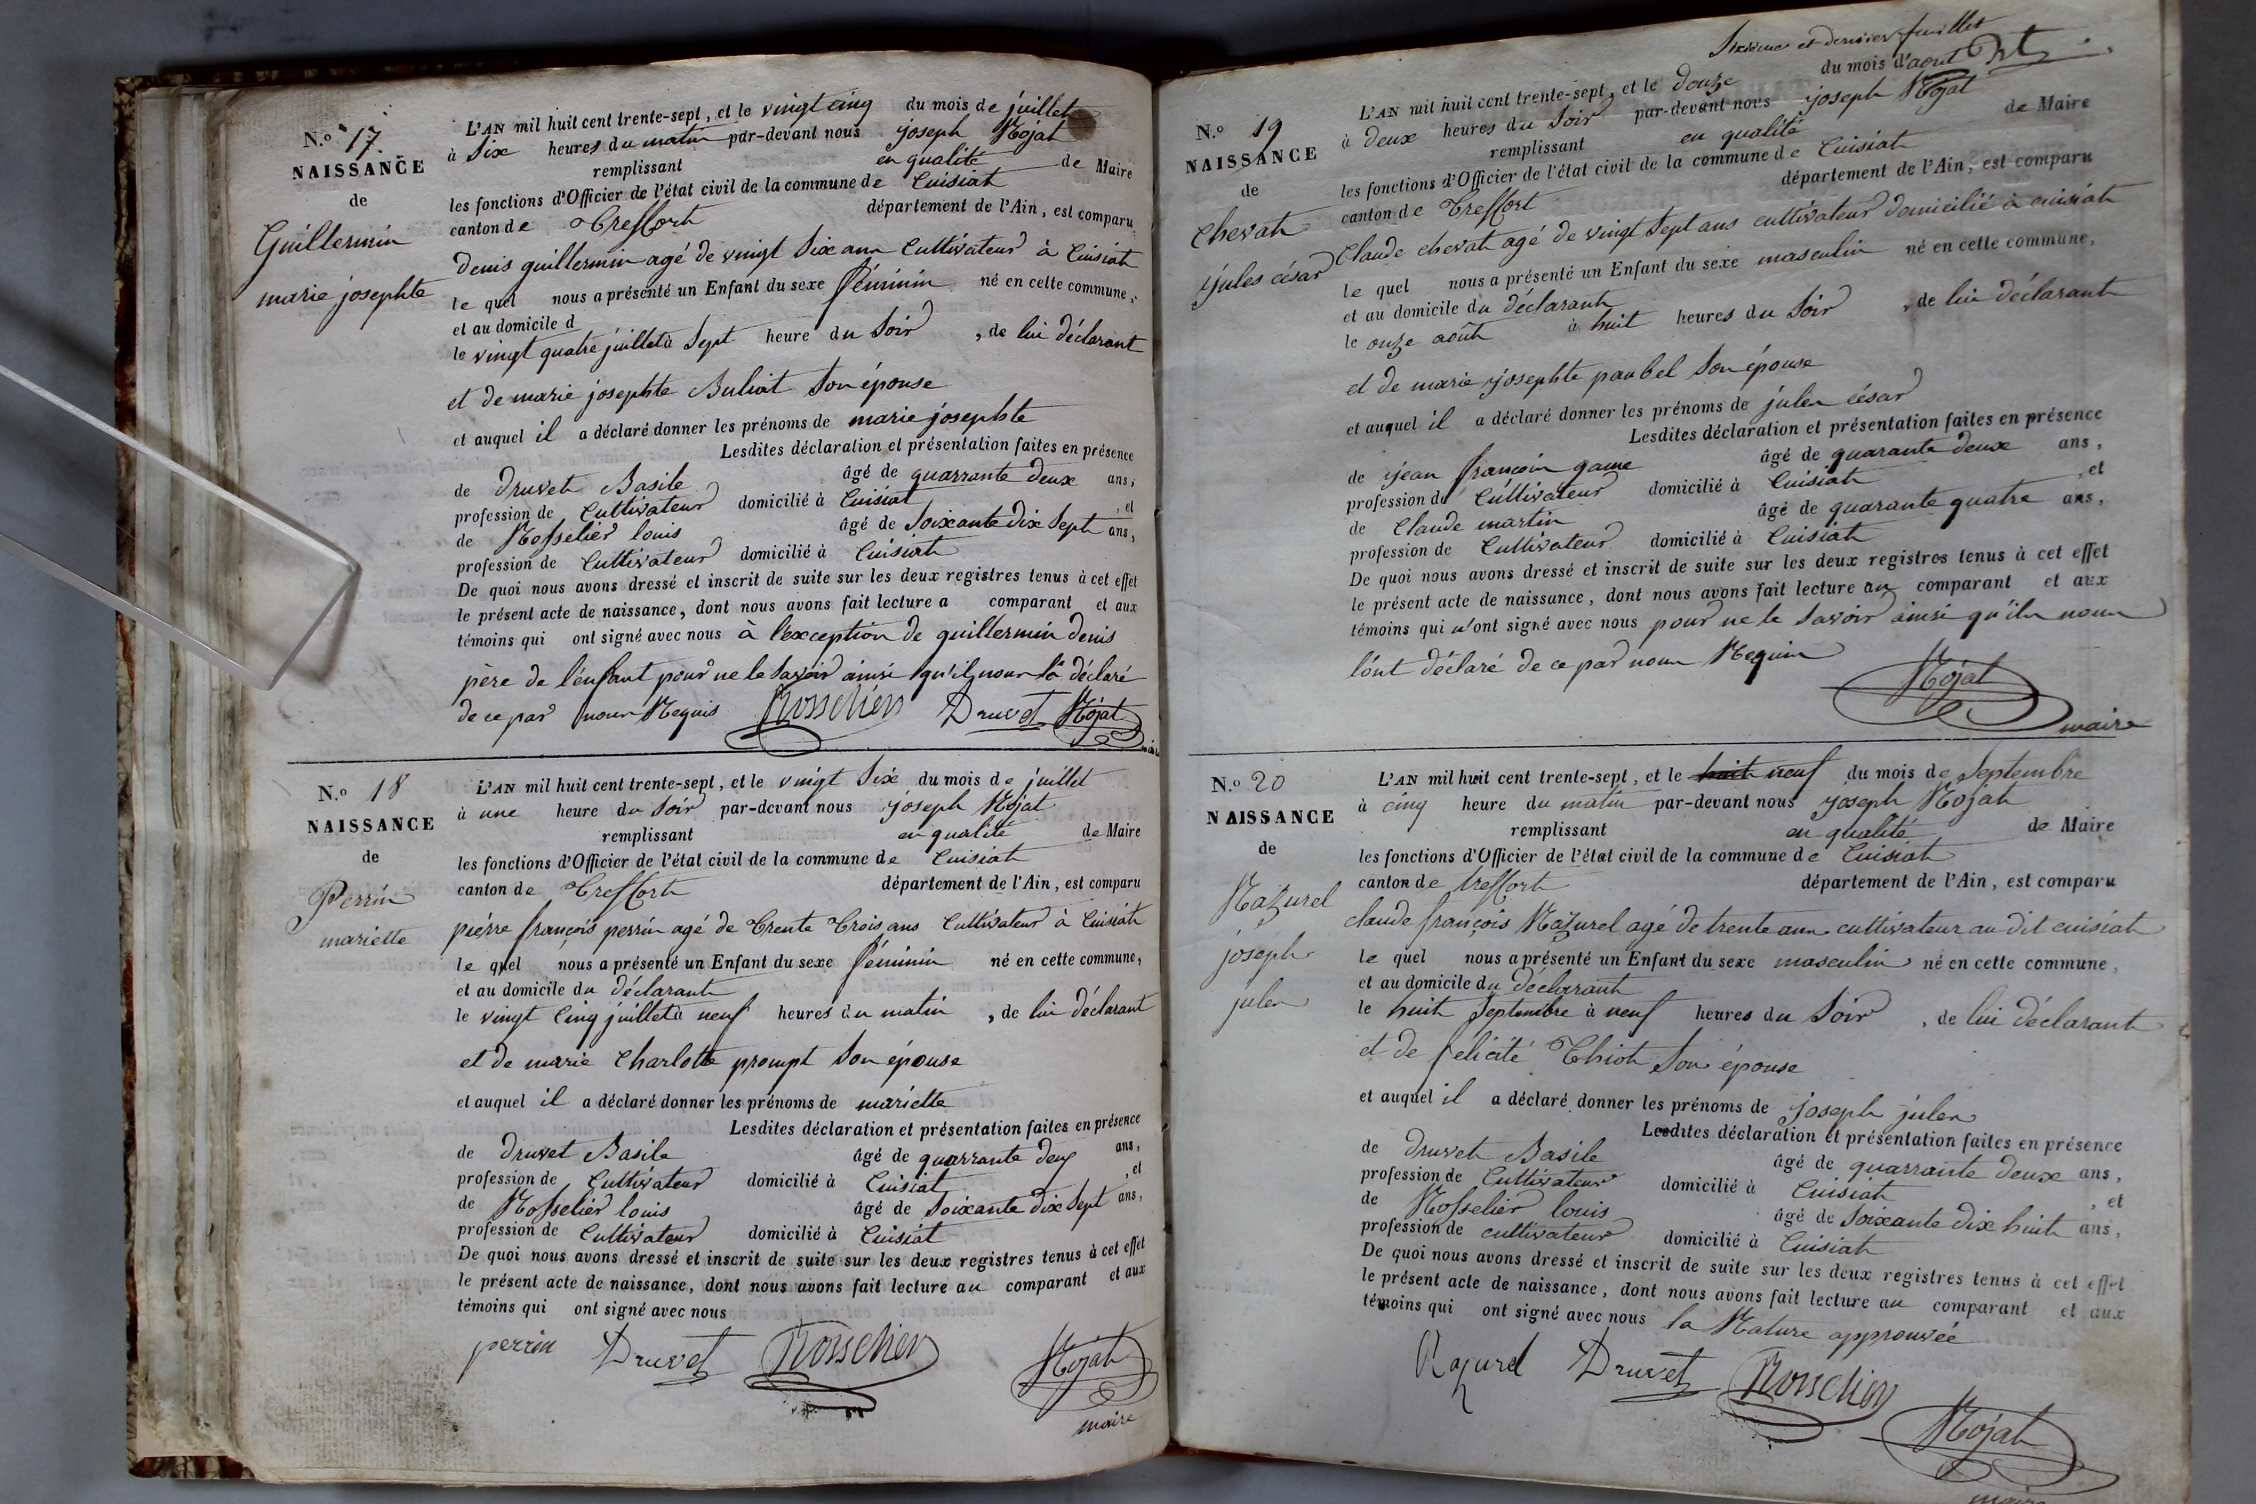 N.º 17.
NAISSANCE
de
Guillermin
marie josephte
L'AN mil huit cent trente-sept, et le vingt cinq du mois de juillet
à Six heures du matin par-devant nous joseph Rojat
remplissant en qualité de Maire
les fonctions d'Officier de l'état civil de la commune de Cuisiat
canton de Treffort département de l'Ain, est comparu
denis guillermin agé de vingt Six ans Cultivateur à Cuisiat
le quel nous a présenté un Enfant du sexe féminin né en cette commune,
et au domicile d
le vingt quatre juillet à Sept heure du Soir, de lui déclarant
et de marie josephte Buliat Son épouse
et auquel il a déclaré donner les prénoms de marie josephte
Lesdites déclaration et présentation faites en présence
de Druvet Basile âgé de quarrante deux ans,
profession de Cultivateur domicilié à Cuisiat, et
de Rosselier louis âgé de Soixante dix Sept ans,
profession de Cultivateur domicilié à Cuisiat
De quoi nous avons dressé et inscrit de suite sur les deux registres tenus à cet effet
le présent acte de naissance, dont nous avons fait lecture a comparant et aux
témoins qui ont signé avec nous à l'exception de guillermin denis
père de l'enfant pour ne le Savoir ainsi qu'il nous l'a déclaré
de ce par nous Requis Rosselier Druvet Rojat
N.º 18
NAISSANCE
de
Perrin
mariette
L'AN mil huit cent trente-sept, et le vingt Six du mois de juillet
à une heure du Soir par-devant nous joseph Rojat
remplissant en qualité de Maire
les fonctions d'Officier de l'état civil de la commune de Cuisiat
canton de Treffort département de l'Ain, est comparu
pierre françois perrin agé de Trente Trois ans Cultivateur à Cuisiat
le quel nous a présenté un Enfant du sexe féminin né en cette commune,
et au domicile du déclarant
le vingt Cinq juillet à neuf heures du matin, de lui déclarant
et de marie Charlotte prompt Son épouse
et auquel il a déclaré donner les prénoms de mariette
Lesdites déclaration et présentation faites en présence
de Druvet Basile âgé de quarrante deux ans,
profession de Cultivateur domicilié à Cuisiat, et
de Rosselier louis âgé de Soixante dix Sept ans,
profession de Cultivateur domicilié à Cuisiat
De quoi nous avons dressé et inscrit de suite sur les deux registres tenus à cet effet
le présent acte de naissance, dont nous avons fait lecture au comparant et aux
témoins qui ont signé avec nous
perrin Druvet Rosselier Rojat
maire
Sixième et dernier feuillet
N.º 19
NAISSANCE
de
Chevat
jules césar
L'AN mil huit cent trente-sept, et le douze du mois d'aout
à deux heures du Soir par-devant nous joseph Rojat
remplissant en qualité de Maire
les fonctions d'Officier de l'état civil de la commune de Cuisiat
canton de Treffort département de l'Ain, est comparu
Claude chevat agé de vingt Sept ans cultivateur domicilié à cuisiat
le quel nous a présenté un Enfant du sexe masculin né en cette commune,
et au domicile du déclarant
le onze août à huit heures du Soir, de lui déclarant
et de marie josephte paubel Son épouse
et auquel il a déclaré donner les prénoms de jules césar
Lesdites déclaration et présentation faites en présence
de jean françois âgé de quarante deux ans,
profession de Cultivateur domicilié à Cuisiat, et
de Claude martin âgé de quarante quatre ans,
profession de Cultivateur domicilié à Cuisiat
De quoi nous avons dressé et inscrit de suite sur les deux registres tenus à cet effet
le présent acte de naissance, dont nous avons fait lecture au comparant et aux
témoins qui n'ont signé avec nous pour ne le Savoir ainsi qu'ils nous
l'ont déclaré de ce par nous Requis
Rojat
maire
N.º 20
NAISSANCE
de
Razurel
joseph
jules
L'AN mil huit cent trente-sept, et le huit neuf du mois de Septembre
à cinq heure du matin par-devant nous joseph Rojat
remplissant en qualité de Maire
les fonctions d'Officier de l'état civil de la commune de Cuisiat
canton de treffort département de l'Ain, est comparu
claude françois Razurel agé de trente ans cultivateur au dit cuisiat
le quel nous a présenté un Enfant du sexe masculin né en cette commune,
et au domicile du déclarant
le huit Septembre à neuf heures du Soir, de lui déclarant
et de felicité Thiot Son épouse
et auquel il a déclaré donner les prénoms de joseph jules
Lesdites déclaration et présentation faites en présence
de Druvet Basile âgé de quarrante deux ans,
profession de Cultivateur domicilié à Cuisiat, et
de Rosselier louis âgé de Soixante dix huit ans,
profession de cultivateur domicilié à Cuisiat
De quoi nous avons dressé et inscrit de suite sur les deux registres tenus à cet effet
le présent acte de naissance, dont nous avons fait lecture au comparant et aux
témoins qui ont signé avec nous la Rature approuvée
Razurel Druvet Rosselier
Rojat
maire